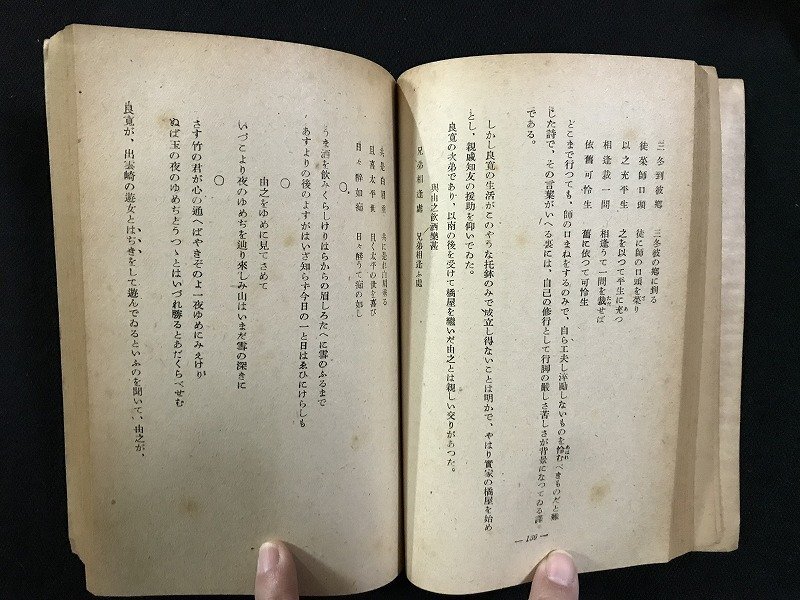 三冬到彼鄕　三冬彼の鄕に到る
徒業師口頭　徒に師の口頭を
以之充平生　之を以つて平生に充つ
相逢裁一問　相逢うて一問を裁せば
依舊可怜生　舊に依つて可怜生
どこまで行つても、師の口まねをするのみで、自ら工夫し淬勵しないものを怜むべきものだと難
じた詩で、その言葉がいへる裏には、自己の修行として行脚の嚴しさ苦しさが背景になつてゐる譯
である。
しかし良寛の生活がこのやうな托鉢のみで成立し得ないことは明かで、やはり實家の橘屋を始め
とし、親戚知友の援助を仰いでゐた。
良寛の次弟であり、以南の後を受けて橘屋を繼いだ由之とは親しい交りがあつた。
與由之飮酒樂甚
兄弟相逢處　兄弟相逢ふ處
共是白眉垂　共に是れ白眉垂る
且喜太平世　且く太平の世を喜び
日々醉如痴　日々醉うて痴の如し
〇
うま酒を飮みくらしけりはらからの眉しろたへに雪のふるまで
あすよりの後のよすがはいざ知らず今日の一と日はゑひにけらしも
〇
由之をゆめに見てさめて
いづこより夜のゆめぢを辿り來しみ山はいまだ雪の深きに
〇
さす竹の君が心の通へばやきそのよ一夜ゆめにみえけり
ぬば玉の夜のゆめぢとうつゝとはいづれ勝るとあだくらべせむ
良寛が、出雲崎の遊女とはぢきをして遊んでゐるといふのを聞いて、由之が、
— 139 —